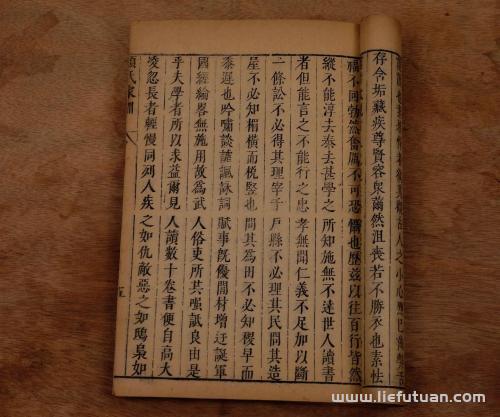 人之小心黜己齒弊舌
存含垢藏疾尊賢容衆薾然沮喪若不勝衣也素怯
福不回勃然奮厲不可恐懾也歷茲以往百行皆然
縱不能淳去泰去甚學之所知施無不達世人讀書
者但能言之不能行之忠孝無聞仁義不足加以斷
一條訟不必得其理宰千戶縣不必理其民問其造
屋不必知楣橫而梲豎也問其爲田不必知稷早而
黍遲也吟嘯談謔諷詠詞賦事旣優閒材增迂誕軍
國經綸畧無施用故爲武人俗吏所共嗤詆良由是
乎夫學者所以求益爾見人讀數十卷書便自高大
凌忽長者輕慢同列人疾之如仇敵惡之如鴟梟如
顏氏家訓
五
www.liefutuan.com